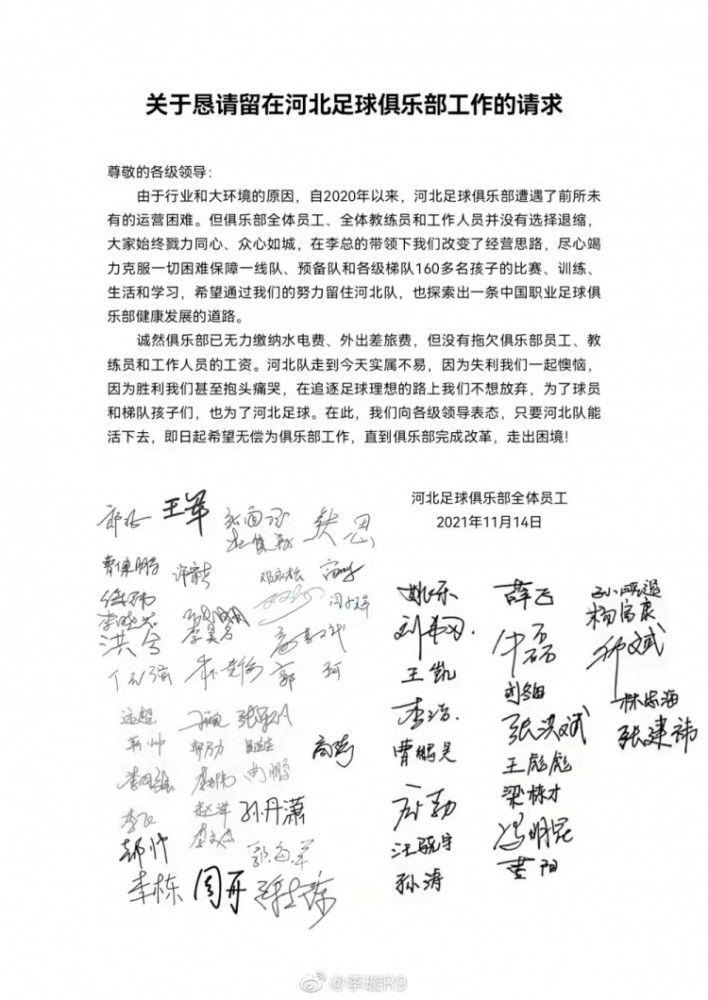 关于恳请留在河北足球俱乐部工作的请求
尊敬的各级领导：
由于行业和大环境的原因，自2020年以来，河北足球俱乐部遭遇了前所未
有的运营困难。但俱乐部全体员工、全体教练员和工作人员并没有选择退缩，
大家始终戮力同心、众心如城，在李总的带领下我们改变了经营思路，尽心竭
力克服一切困难保障一线队、预备队和各级梯队160多名孩子的比赛、训练、
生活和学习，希望通过我们的努力留住河北队，也探索出一条中国职业足球俱
乐部健康发展的道路。
诚然俱乐部已无力缴纳水电费、外出差旅费，但没有拖欠俱乐部员工、教
练员和工作人员的工资。河北队走到今天实属不易，因为失利我们一起懊恼，
因为胜利我们甚至抱头痛哭，在追逐足球理想的路上我们不想放弃，为了球员
和梯队孩子们，也为了河北足球。在此，我们向各级领导表态，只要河北队能
活下去，即日起希望无偿为俱乐部工作，直到俱乐部完成改革，走出困境！
河北足球俱乐部全体员工
2021年11月14日
王军
曹保鹏
姚乐
薛飞
杨富康
洪兮
王凯
郭珂
刘甸
林忠海
远超
李浩
张洪斌
张建祎
曹鹏昊
王彪彪
梁栋才
孙丹潇
汪骁宇
冯明昆
郝帅
黄阳
李栋
周开
孙涛
@李璇R9